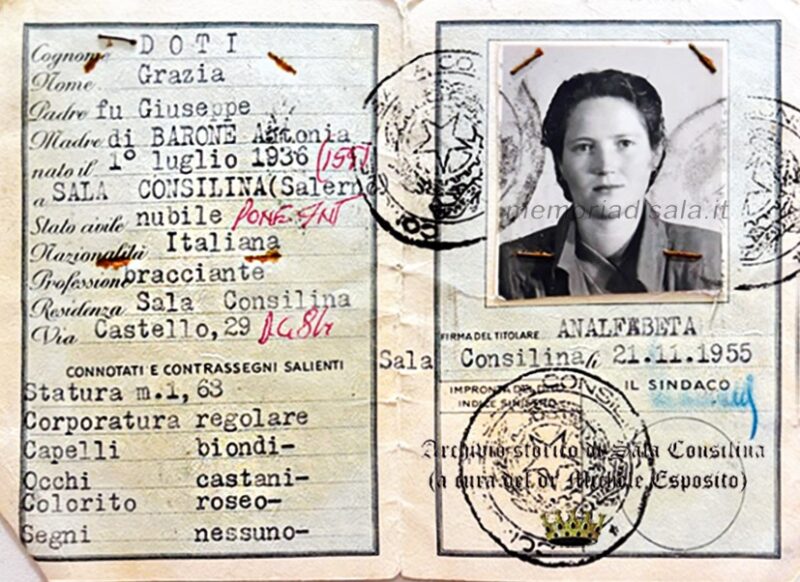 Cognome DOTI
Nome Grazia
Padre fu Giuseppe
Madre di BARONE Antonia
nato il 1° luglio 1936 (1597)
a SALA CONSILINA(Salerno)
Stato civile nubile
Nazionalità Italiana
Professione bracciante
Residenza Sala Consilina
Via Castello, 29
CONNOTATI E CONTRASSEGNI SALIENTI
Statura m.1, 63
Corporatura regolare
Capelli biondi-
Occhi castani-
Colorito roseo-
Segni nessuno-
memoriadisala.it
FIRMA DEL TITOLARE ANALFABETA
Sala Consilina li 21.11.1955
IMPRONTA DEL DITO
INDICE SINISTRO
IL SINDACO
Archivio storico di Sala Consilina
(a cura del dr Michele Esposito)